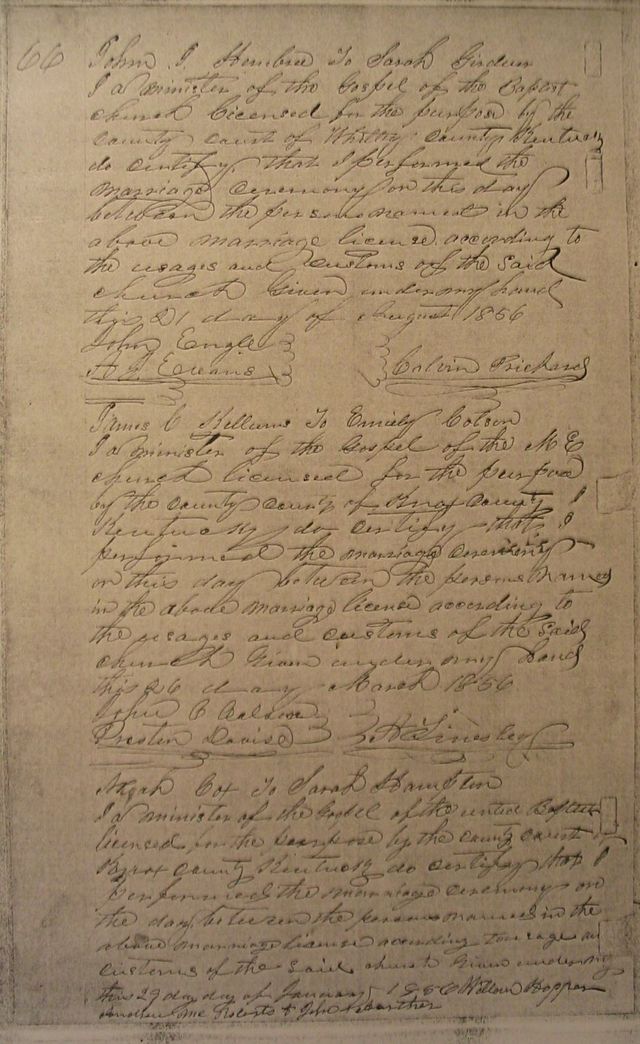 66
John J Hembree To Sarah Girdner
I a minister of the Gospel of the Baptist
church licensed for the purpose by the
county court of Whitley county Kentucky
do certify that I performed the
marriage ceremony on this day
between the persons named in the
above marriage license according to
the usages and customs of the said
church Given under my hand
this 21 day of August 1856
John Engle
Evans Calvin Prichard
James C Kellums To Emily Colson
I a minister of the Gospel of the M E
church licensed for the purpose
by the county county of Knox County
Kentucky do certify that I
performed the marriage ceremony
on this day between the persons named
in the above marriage license according to
the usages and customs of the said
church Given under my hand
this 26 day March 1856
John C Colson
Preston Davis Tinsley
Cox To Sarah Hampton
I a minister of the Gospel of the united Baptist
licensed for the purpose by the county court of
Knox County Kentucky do certify that I
performed the marriage ceremony on
the day between the persons named in the
above marriage license according to usage an
customs of the said church Given under my
this 29 day day of January 1856 Hopper
Andrew Mc Roberts & John